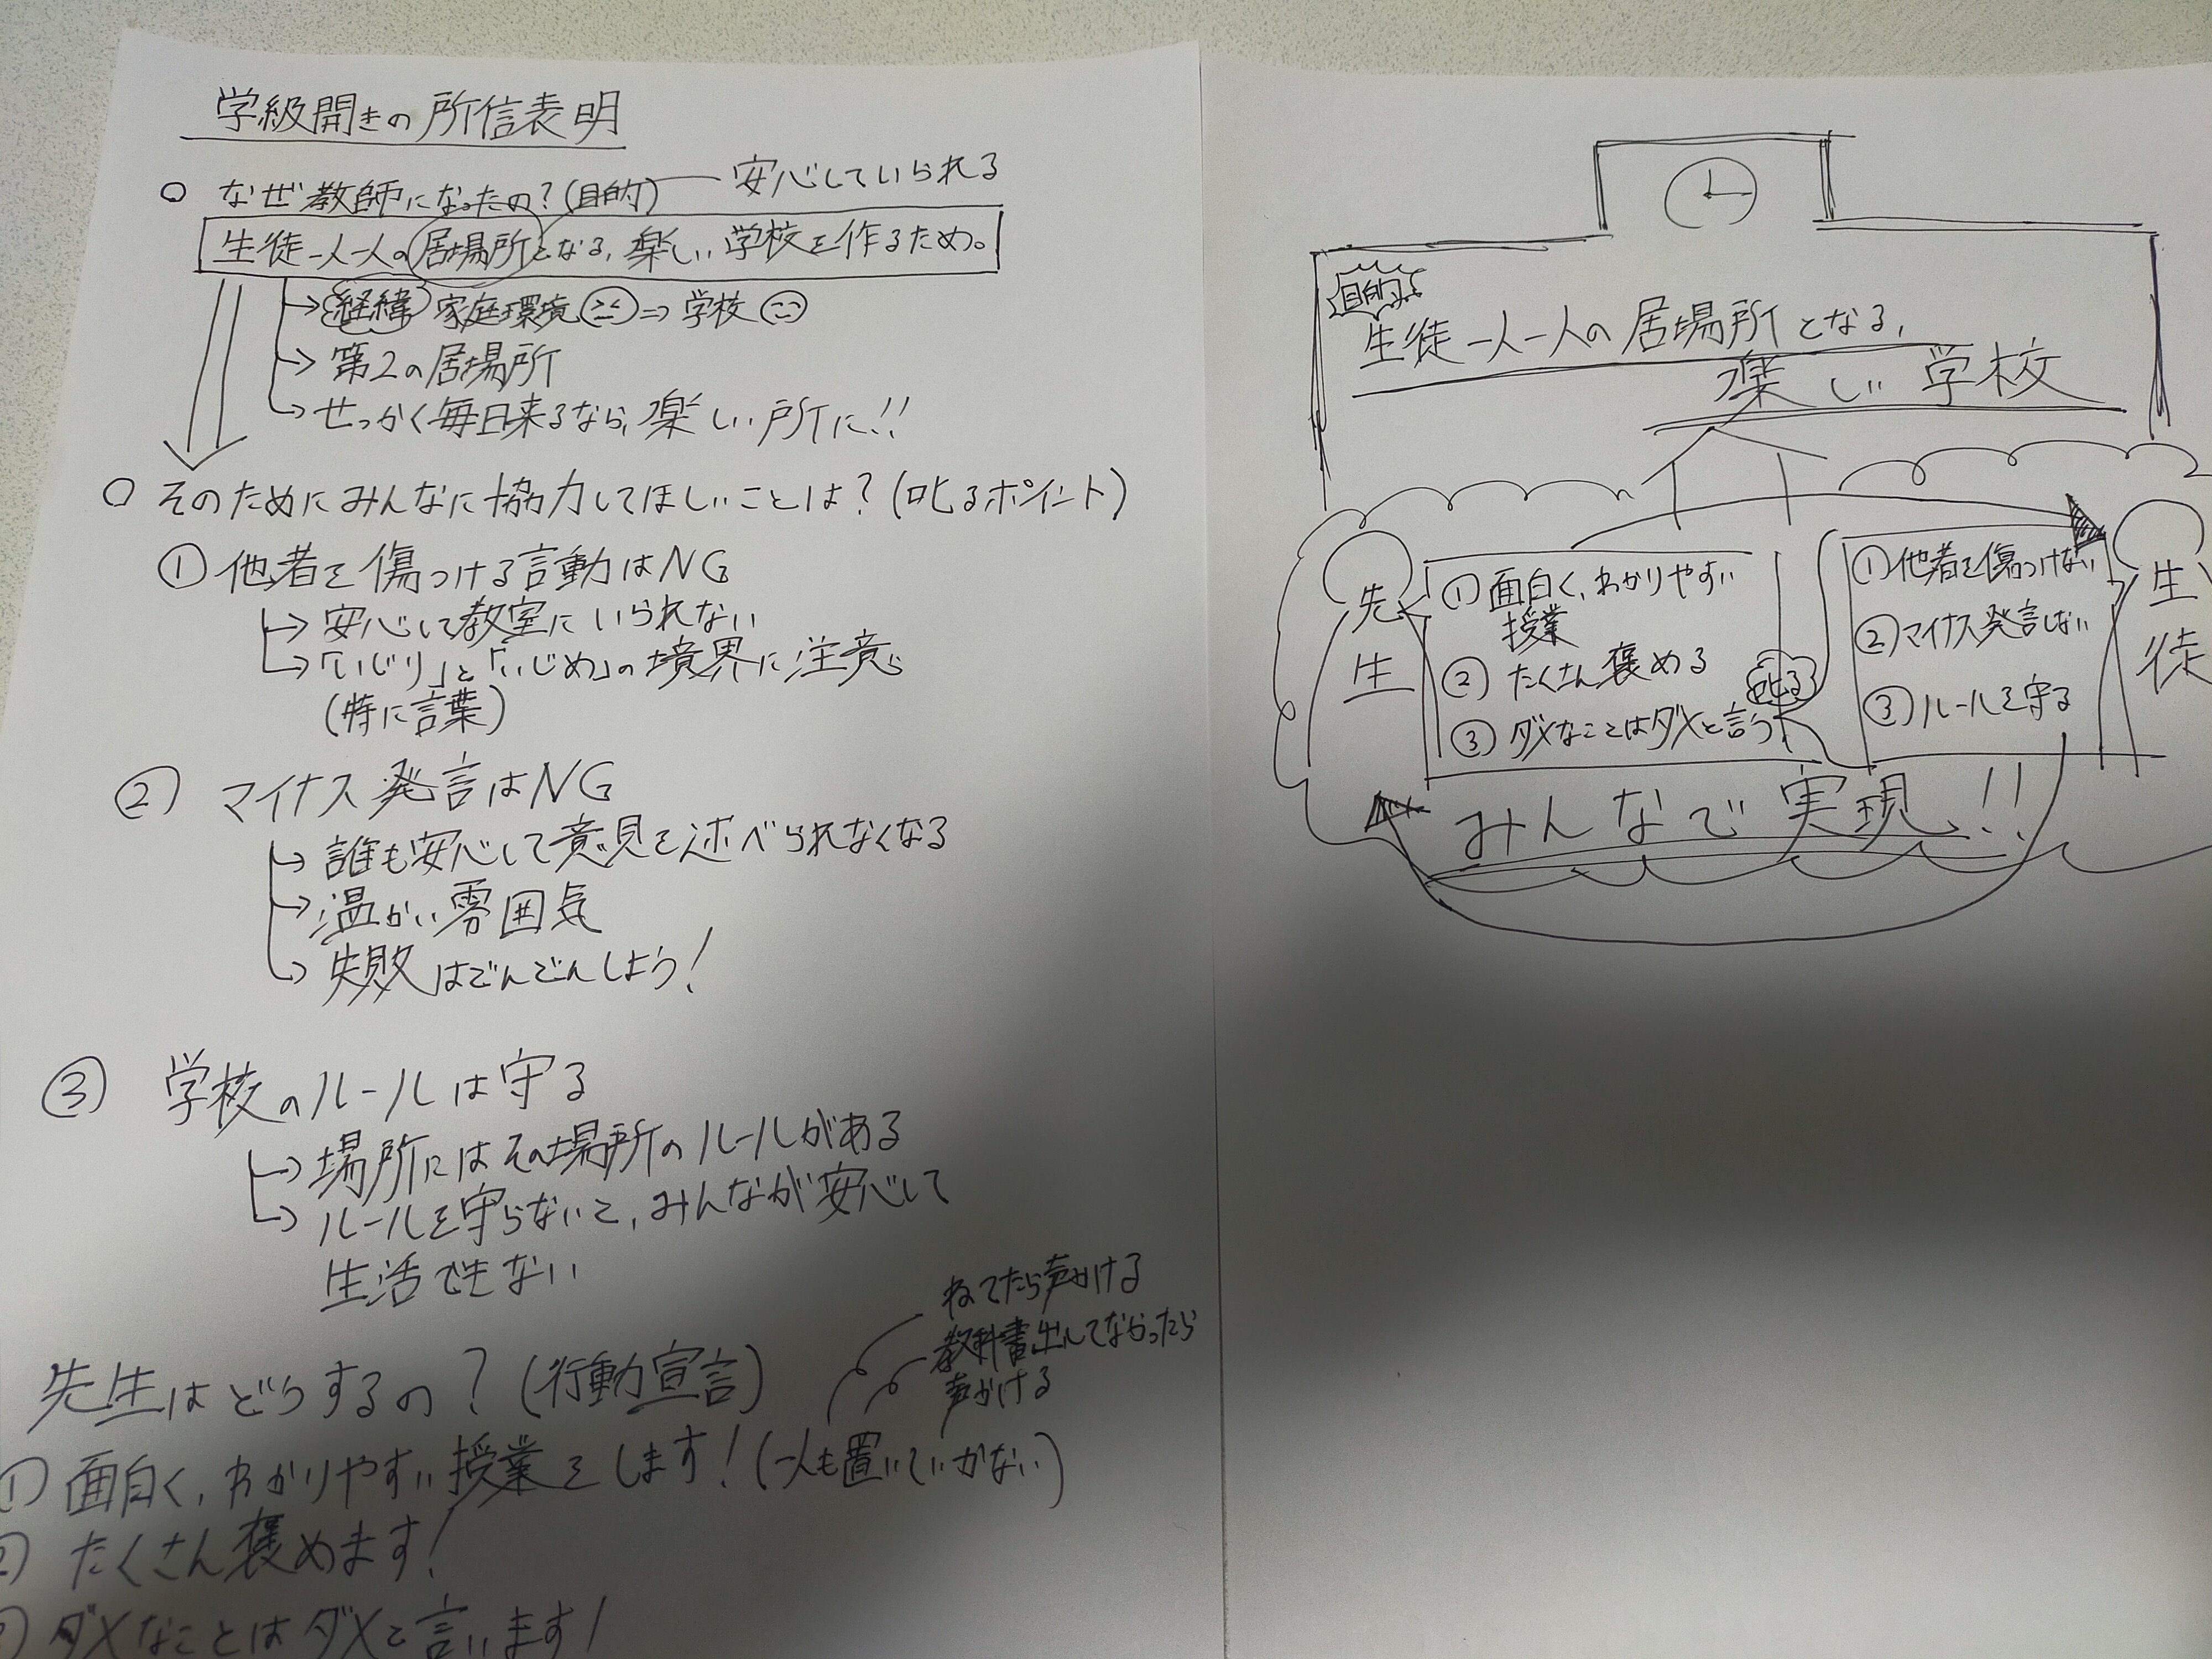 学級開きの所信表明
○ なぜ教師になったの？(目的) 安心していられる
生徒一人一人の居場所となる，楽しい学校を作るため。
→ 経緯 家庭環境 ⇒ 学校
→ 第2の居場所
→ せっかく毎日来るなら，楽しい所に!!
○ そのためにみんなに協力してほしいことは？(叱るポイント)
① 他者を傷つける言動はNG
→ 安心して教室にいられない
→ 「いじり」と「いじめ」の境界に注意
(特に言葉)
② マイナス発言はNG
→ 誰も安心して意見を述べられなくなる
→ 温かい雰囲気
→ 失敗はどんどんしよう！
③ 学校のルールは守る
→ 場所にはその場所のルールがある
→ ルールを守らないと，みんなが安心して
生活できない
先生はどうするの？(行動宣言)
ねてたら声かける
教科書出してなかったら
声かける
① 面白く，わかりやすい授業をします！(一人も置いていかない)
② たくさん褒めます！
③ ダメなことはダメと言います！
目的
生徒一人一人の居場所となる，
楽しい学校
先生
① 面白く，わかりやすい
授業
② たくさん褒める
③ ダメなことはダメと言う
叱る
① 他者を傷つけない
② マイナス発言しない
③ ルールを守る
生徒
みんなで実現!!